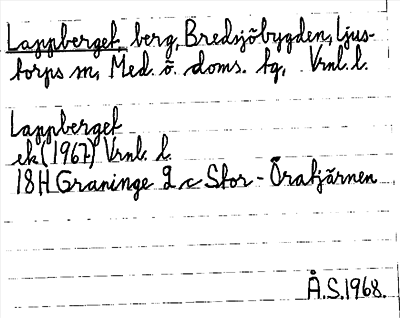 Lappberget, berg, Bredsjöbygden, Ljus-
torps sn, Med. ö. doms. tg, Vrnl. l.
Lappberget
ek (1967) Vrnl. l.
18H Graninge 9 c Stor-Öratjärnen
Å.S.1968.